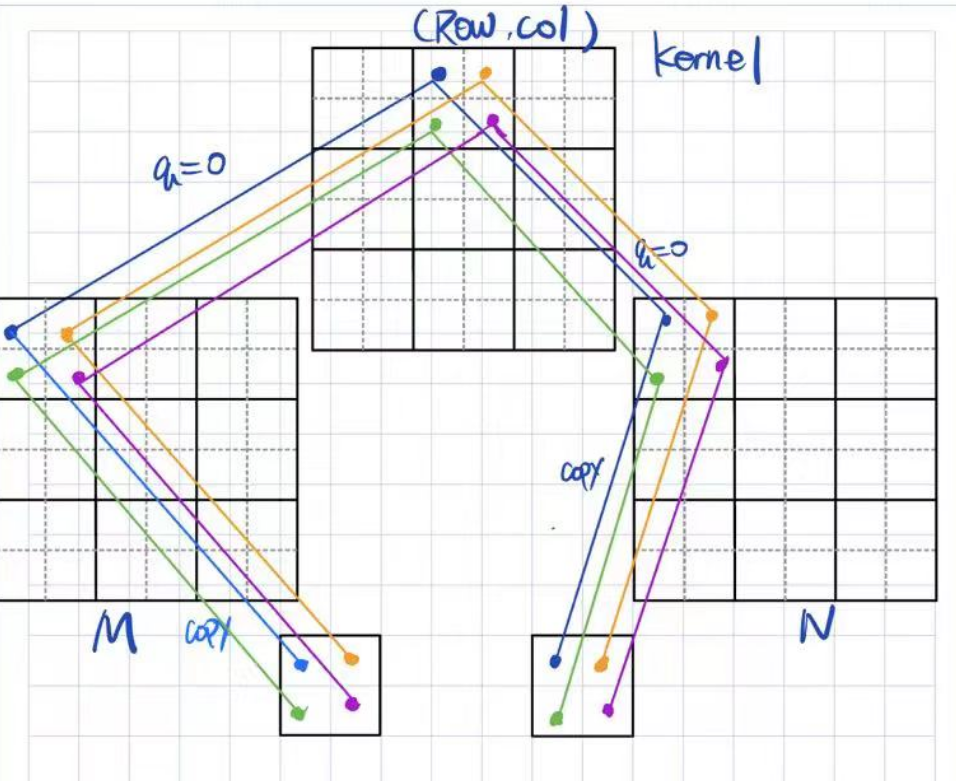 (Row,col)
kernel
q=0
q=0
copy
M
copy
N